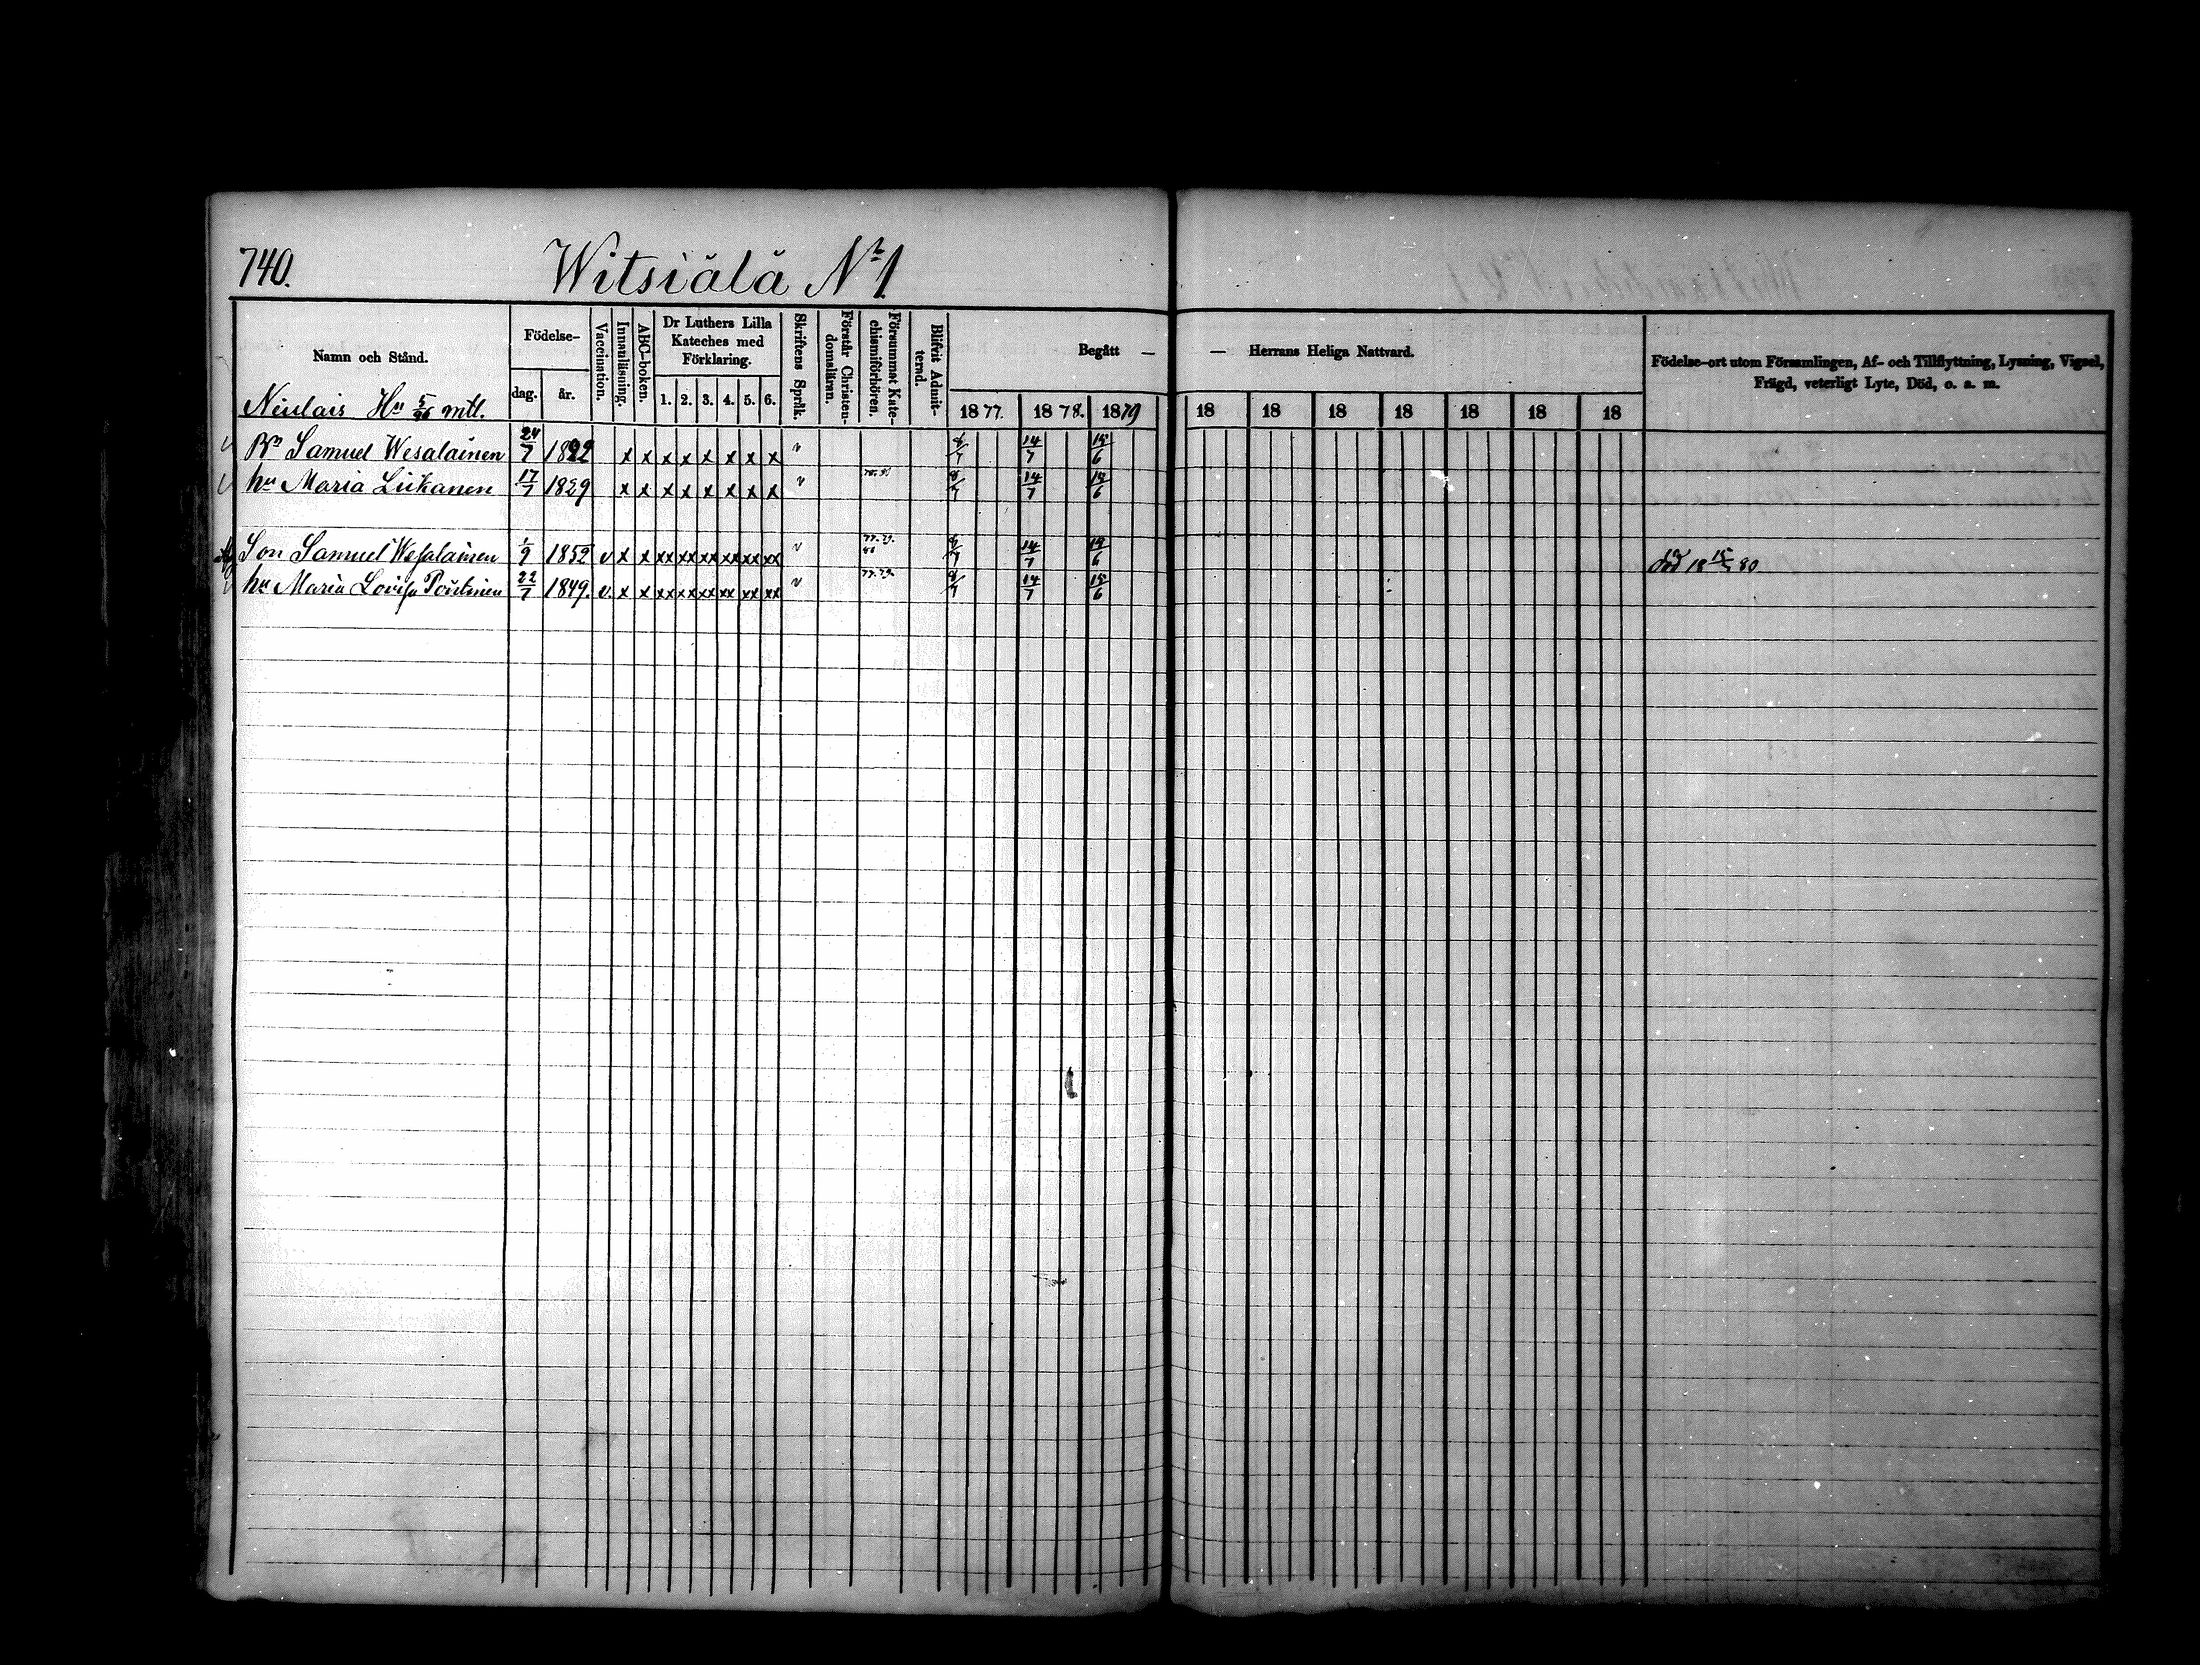 740.
Witsiälä No 1
Namn och Stånd.
Födelse-
dag. år.
Vaccination.
Innanläsning.
ABC-boken.
Dr Luthers Lilla
Kateches med
Förklaring.
1. 2. 3. 4. 5. 6.
Skriftens Språk.
Förstår Christen-
domsläran.
Försummat Kate-
chismiförhören.
Blifvit Admit-
terad.
Begått — — Herrans Heliga Nattvard.
1877. 1878. 1879 18 18 18 18 18 18 18
Födelse-ort utom Församlingen, Af- och Tillflyttning, Lysning, Vigsel,
Frägd, veterligt Lyte, Död, o. s. m.
Hn 5/96 mtl.
Bn Samuel Wesalainen 24/7 1822 x x x x x x x x v 14/7 15/6
hu Maria Liikanen 17/7 1829 x x x x x x x x v 14/7 15/6
Son Samuel Wesalainen 1/9 1852 v x x xx xx xx xx xx xx v 77.79. 14/7 15/6 död 18 15/ 80
hu Maria Lovisa 22/7 1849. v. x x xx xx xx xx xx xx v 77.79. 14/7 15/6